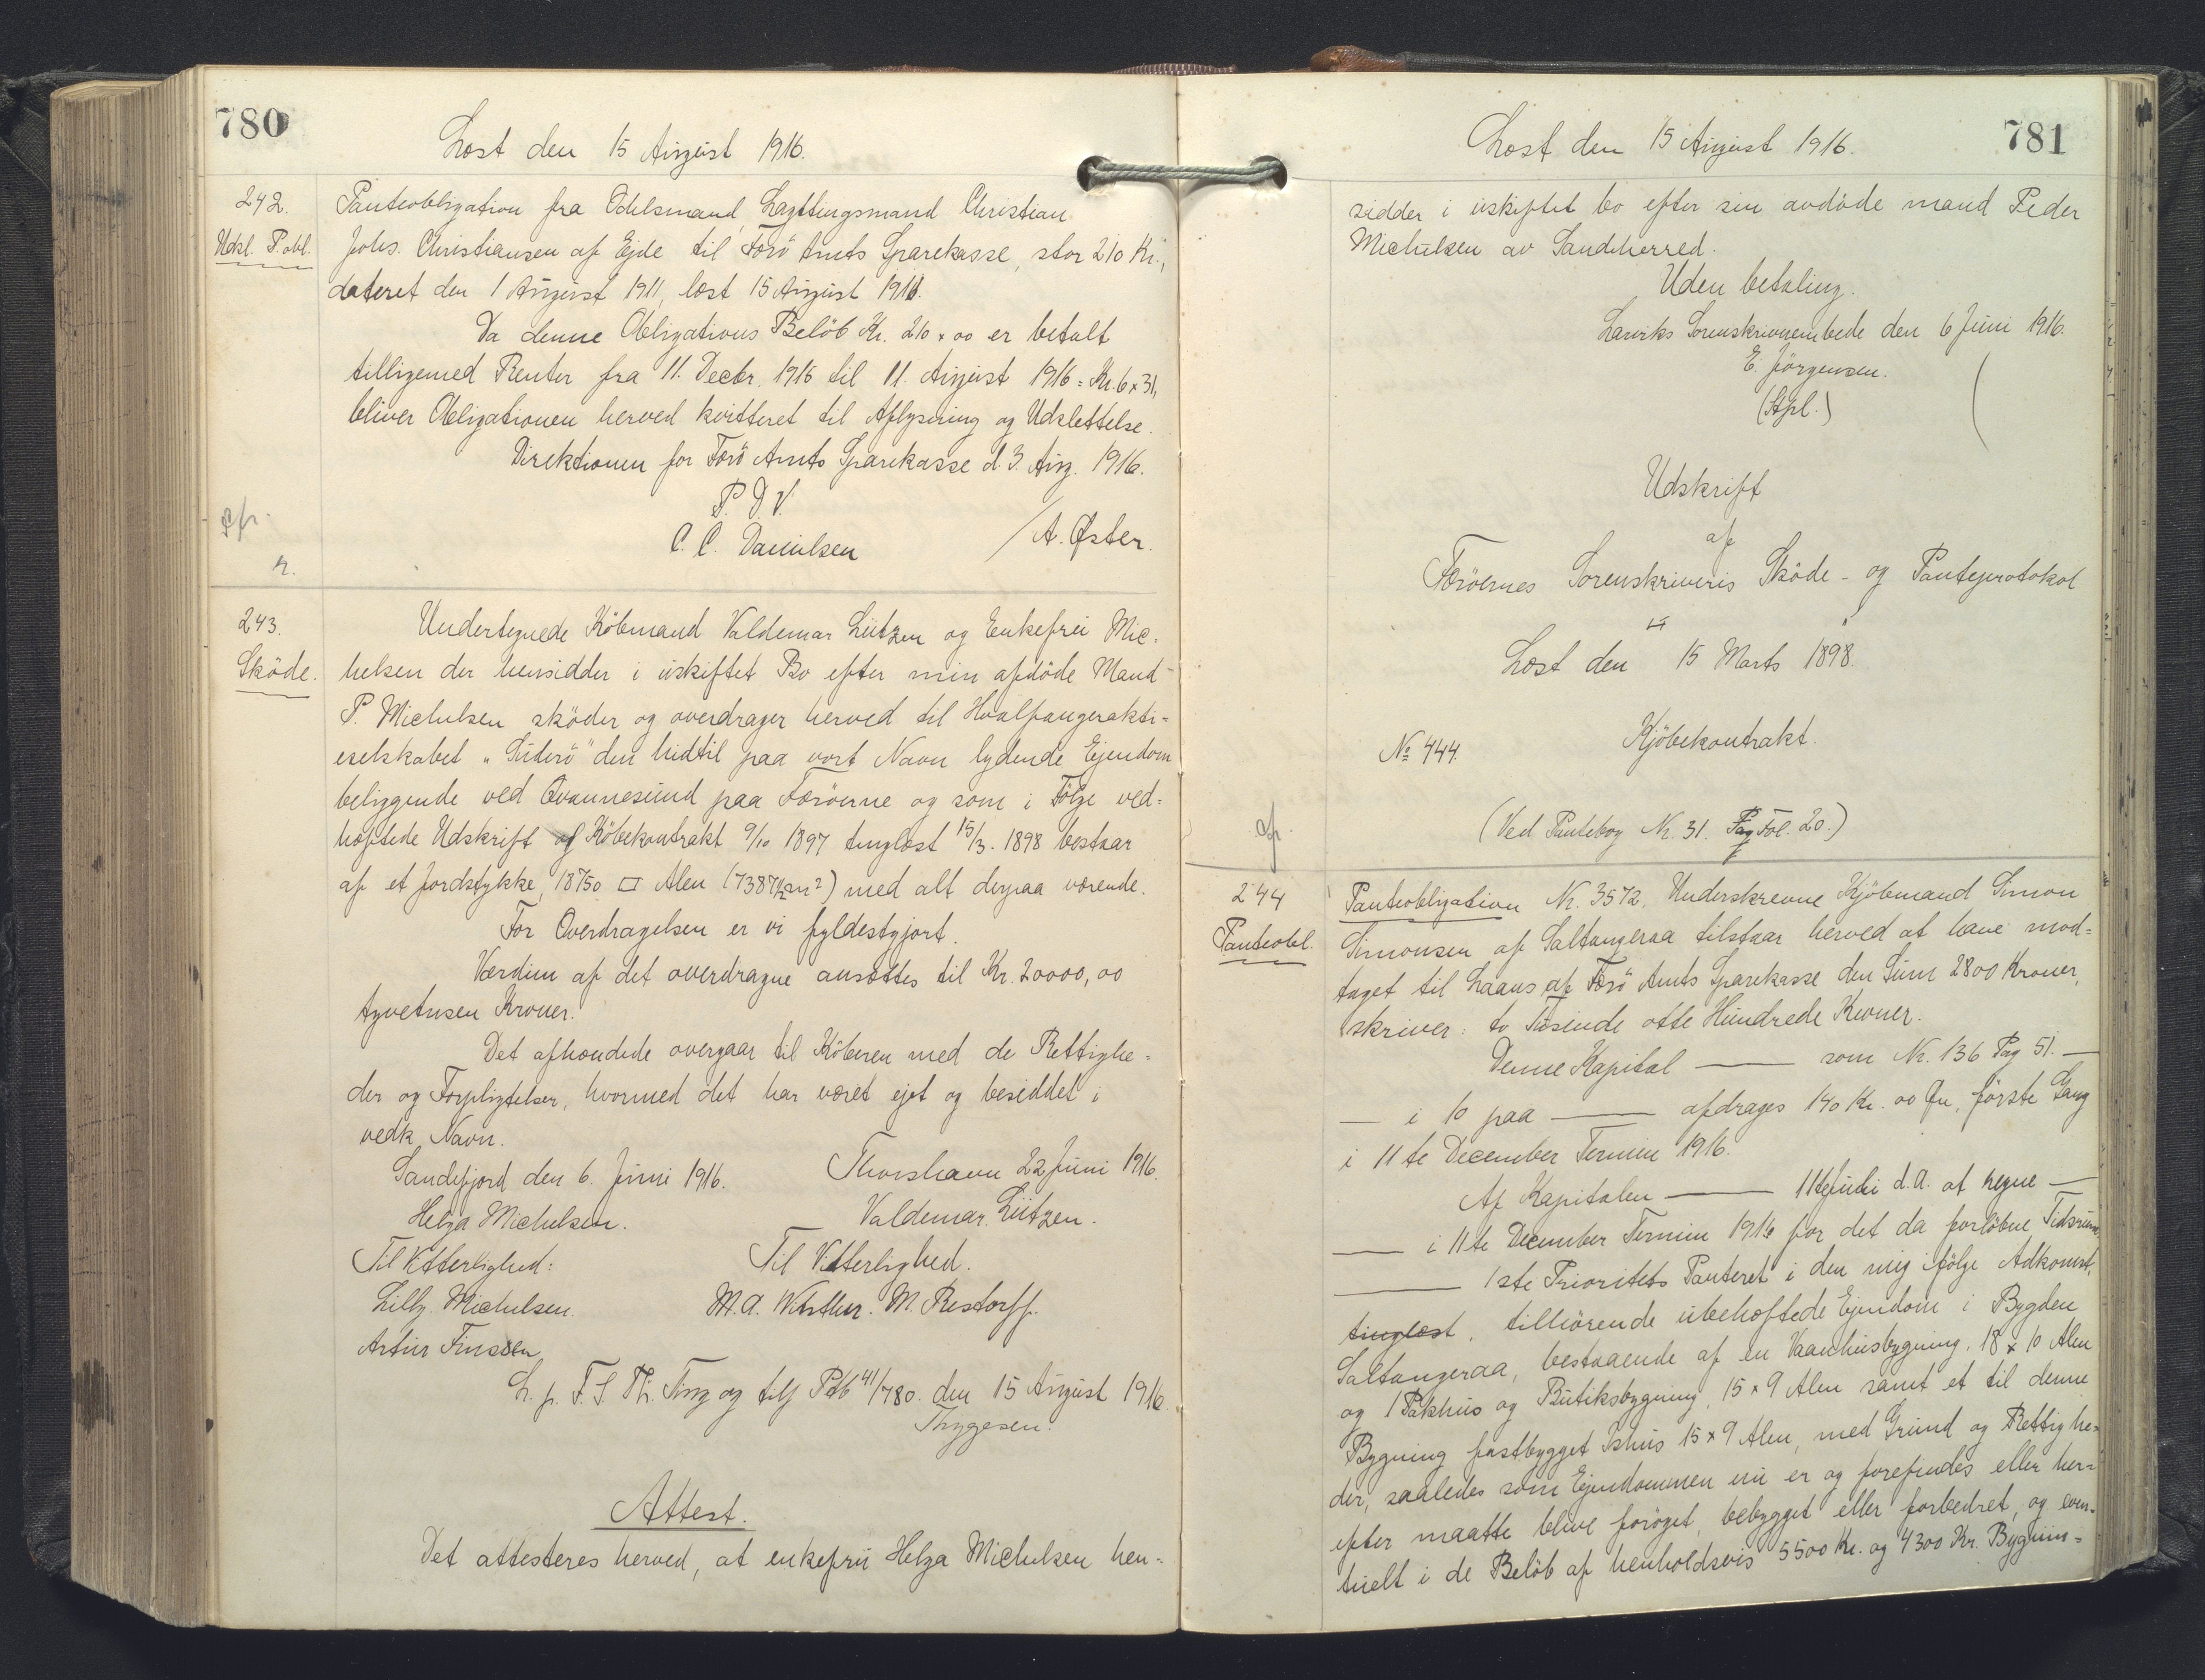 780
Læst den 15 August 1916.
242.
Udsl. P.obl.
Panteobligation fra Odelsmand, Lagttingsmand Christian
Johs. Christiansen af Ejde til Færö Amts Sparekasse, stor 210 Kr.,
dateret den 1 August 1911, læst 15 August 1911.
Da denne Obligations Belöb Kr. 210 x 00 er betalt
tilligemed Renter fra 11. Decbr. 1915 til 11 August 1916 = Kr. 6 x 31,
bliver Obligationen herved kvitteret til Aflysning og Udslettelse.
Direktionen for Färö Amts Sparekasse d. 3. Aug. 1916.
P. D. V.
C. C. Danielsen / A. Øster.
243.
Sköde.
Undertegnede Köbmand Valdemar Lützen og Enkefru Mic-
helsen der hensidder i uskiftet Bo efter min afdöde Mand
P. Michelsen sköder og overdrager herved til Hvalfangerakti-
eselskabet "Suderö" den hidtil paa vort Navn lydende Ejendom
beliggende ved Qvannesund paa Færöerne og som i Fölge ved-
hæftede Udskrift af Köbekontrakt 9/10 1897 tinglæst 15/3. 1898 bestaar
af et Jordstykke, 18750 □ Alen (7387½ m²) med alt derpaa værende.
For Overdragelsen er vi fyldestgjort.
Værdien af det overdragne ansættes til Kr. 20000,00
tyvetusen Kroner.
Det afhændede overgaar til Köberen med de Rettighe-
der og Forpligtelser, hvormed det har været ejet og besiddet i
vedk. Navn.
Sandefjord den 6. Juni 1916. Thorshavn 22 Juni 1916.
Helga Michelsen. Valdemar Lützen.
Til Vitterlighed: Til Vitterlighed.
Lilly Michelsen. M. A. Winther. M. Restorff.
Artur Finssen
L. p. F. S. Th. Ting og tilf Ptb 41/780. den 15 August 1916.
Thygesen.
Attest.
Det attesteres herved, at enkefru Helga Michelsen hen-
781
Læst den 15 August 1916.
sidder i uskiftet bo efter sin avdöde mand Peder
Michelsen av Sandeherred.
Uden betaling.
Larviks Sorenskriverembede den 6 Juni 1916.
E. Jörgensen.
(Stpl.)
Udskrift
af
Færöernes Sorenskriveris Sköde- og Panteprotokol
Læst den 15 Marts 1898.
No 444. Kjöbekontrakt.
(Ved Pantebog Nr. 31. Fol. 20.)
244
Panteobl.
Panteobligation Nr. 3572. Underskrevne Kjöbmand Simon
Simonsen af Saltangeraa tilstaar herved at have mod-
taget til Laans af Færö Amts Sparekasse den Sum 2800 Kroner,
skriver: to Tusinde otte Hundrede Kroner.
Denne Kapital — som Nr. 136 Pag 51. —
— i 10 paa — afdrages 140 Kr. 00 Ör, förste Gang
i 11te December Termin 1916.
Af Kapitalen — 11te Juli d.A. at regne —
— i 11te December Termin 1916 for det da forlöbne Tidsrum
— 1ste Prioritets Panteret i den mig ifölge Adkomst,
tinglæst, tilhörende ubehæftede Ejendom i Bygden
Saltangeraa, bestaaende af en Vaanhusbygning, 18 x 10 Alen
og 1 Pakhus og Butiksbygning, 15 x 9 Alen samt et til denne
Bygning fastbygget Ishus 15 x 9 Alen, med Grund og Rettighe-
der, saaledes som Ejendommen nu er og forefindes eller her-
efter maatte blive foröget, bebygget eller forbedret, og even-
tuelt i de Belöb af henholdsvis 5500 Kr. og 4300 Kr. Bygnin-